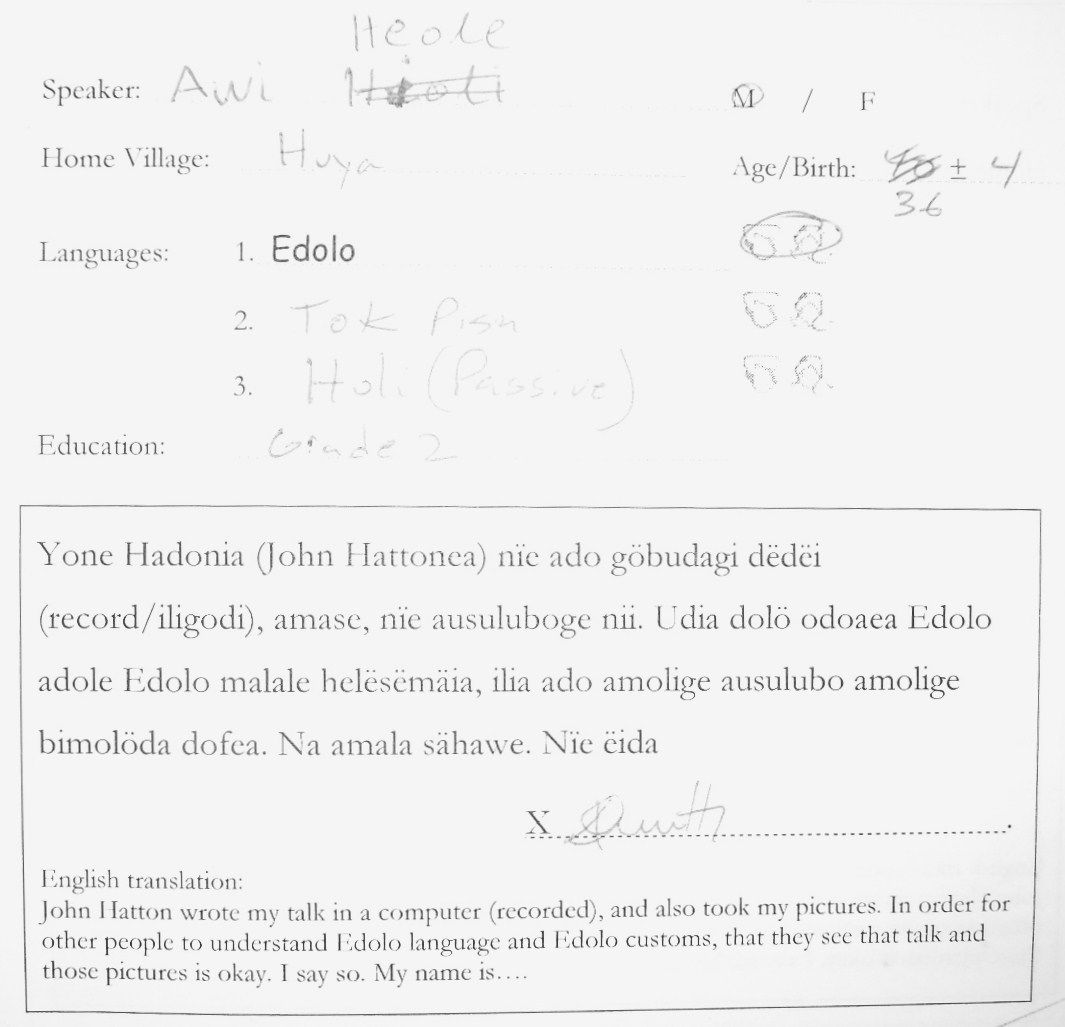 Heole
Speaker: Awi
M / F
Home Village: Huya
Age/Birth: ± 4
36
Languages: 1. Edolo
2. Tok Pisn
3. Holi (Passive)
Education: Grade 2
Yone Hadonia (John Hattonea) nïe ado göbudagi dëdëi
(record/iligodi), amase, nïe ausuluboge nii. Udia dolö odoaea Edolo
adole Edolo malale helësëmäia, ilia ado amolige ausulubo amolige
bimolöda dofea. Na amala sähawe. Nïe ëida
X
English translation:
John Hatton wrote my talk in a computer (recorded), and also took my pictures. In order for
other people to understand Edolo language and Edolo customs, that they see that talk and
those pictures is okay. I say so. My name is....